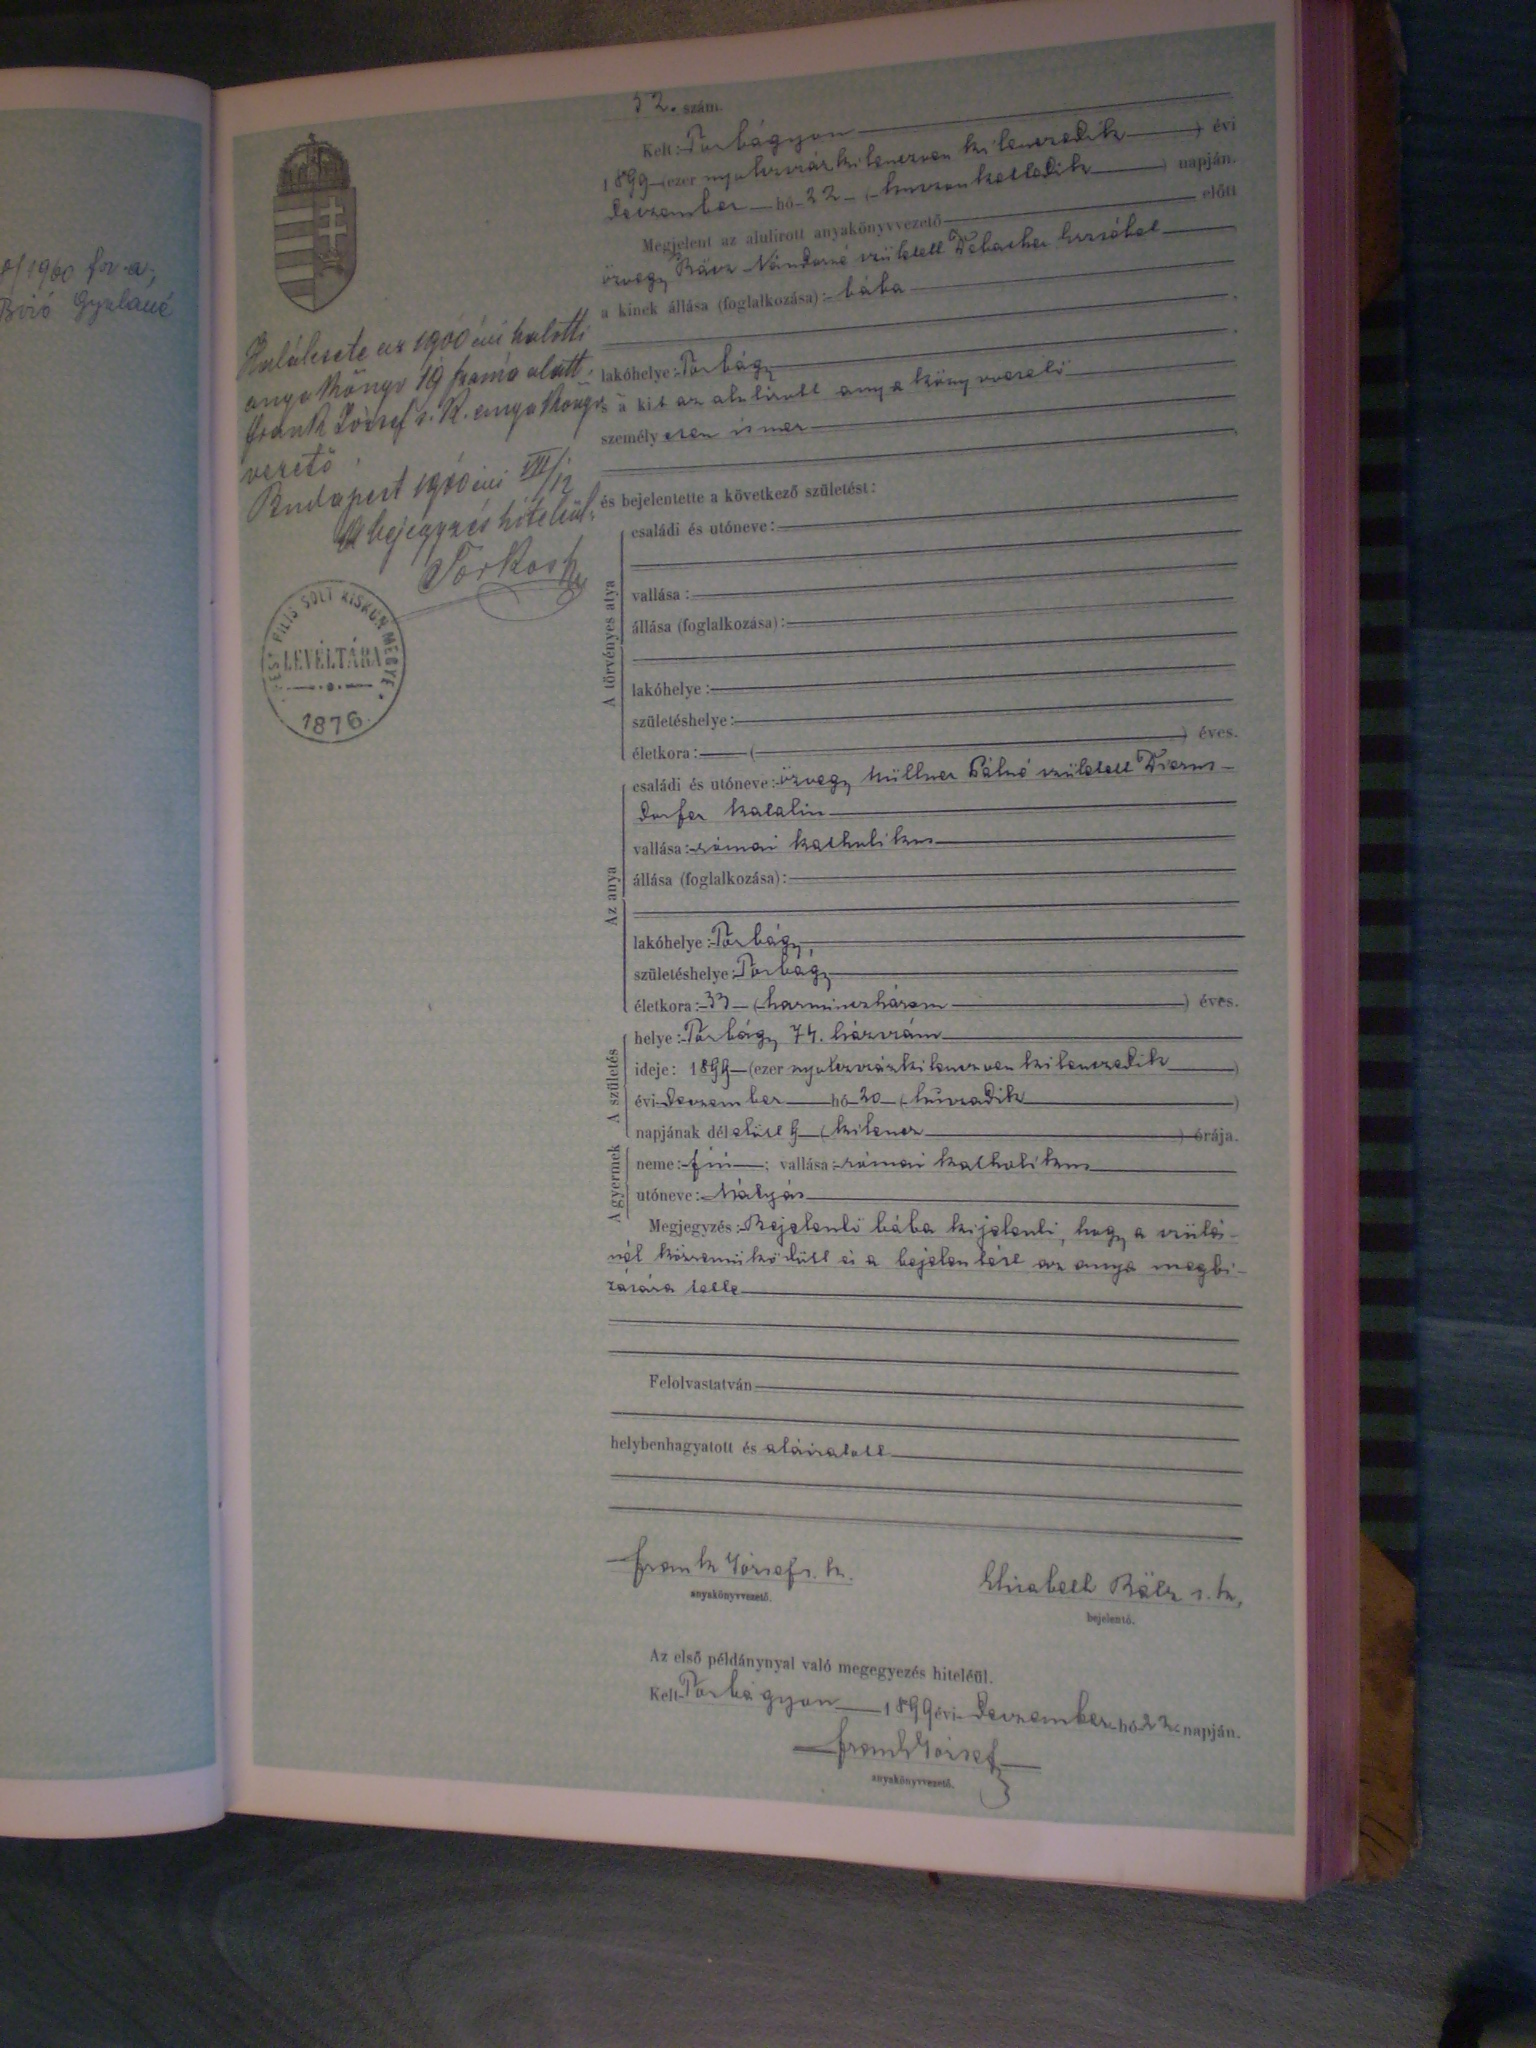 1960 
Bíró Gyuláné
Halálesete az 1900 évi halotti
anyakönyv 19 száma alatt.
Frank József s. k. anyakönyv
vezető.
Budapest 1900 évi VII/12
A bejegyzés hiteléül:
PEST PILIS SOLT KISKUN MEGYE
LEVÉLTÁRA
1876.
52. szám.
Kelt: Torbágyon
1899 (ezer nyolczszázkilenczven kilenczedik ) évi
deczember hó 22 (huszonkettedik ) napján.
Megjelent az alulirott anyakönyvvezető előtt
özvegy Rácz Nándorné született Erzsébet
a kinek állása (foglalkozása): bába
lakóhelye: Torbágy
s a kit az alulirott anyakönyvvezető
személyesen ismer
és bejelentette a következő születést:
A törvényes atya
családi és utóneve:
vallása:
állása (foglalkozása):
lakóhelye:
születéshelye:
életkora: ( ) éves.
Az anya
családi és utóneve: özvegy Müllner Pálné született Dierns-
dorfer Katalin
vallása: római katholikus
állása (foglalkozása):
lakóhelye: Torbágy,
születéshelye: Torbágy
életkora: 33 (harminczhárom ) éves.
A születés
helye: Torbágy 74. házszám
ideje: 1899 (ezer nyolczszázkilenczvenkilenczedik )
évi deczember hó 20 (huszadik )
napjának délelőtt 9 (kilencz ) órája.
A gyermek
neme: fiú; vallása: római katholikus
utóneve: Mátyás
Megjegyzés: Bejelentő bába kijelenti, hogy a szülés-
nél közreműködött és a bejelentést az anya megbi-
zására tette
Felolvastatván
helybenhagyatott és aláiratott
Frank József s. k.
anyakönyvvezető.
Elisabeth s. k.
bejelentő.
Az első példánynyal való megegyezés hiteléül.
Kelt Torbágyon 1899 évi deczember hó 22 napján.
Frank József
anyakönyvvezető.